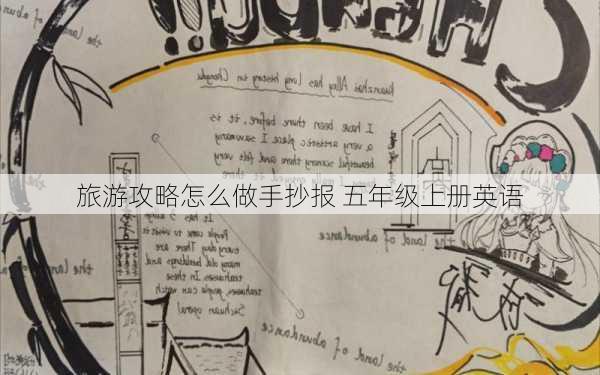 CHENGDU!!
the land of abundance
Kuanzhai Alley has long history in Chengdu
I have been there before, it is
a very artistic place I saw many
beautiful scenery there and felt very
旅游攻略怎么做手抄报 五年级上册英语
People come to visit it
everyday There are
many old buildings and
teahouses. In these
teahouses, people can watch
Sichuan opera!
the land of abundance
the land of abundance
the land of abundance
the land
成都